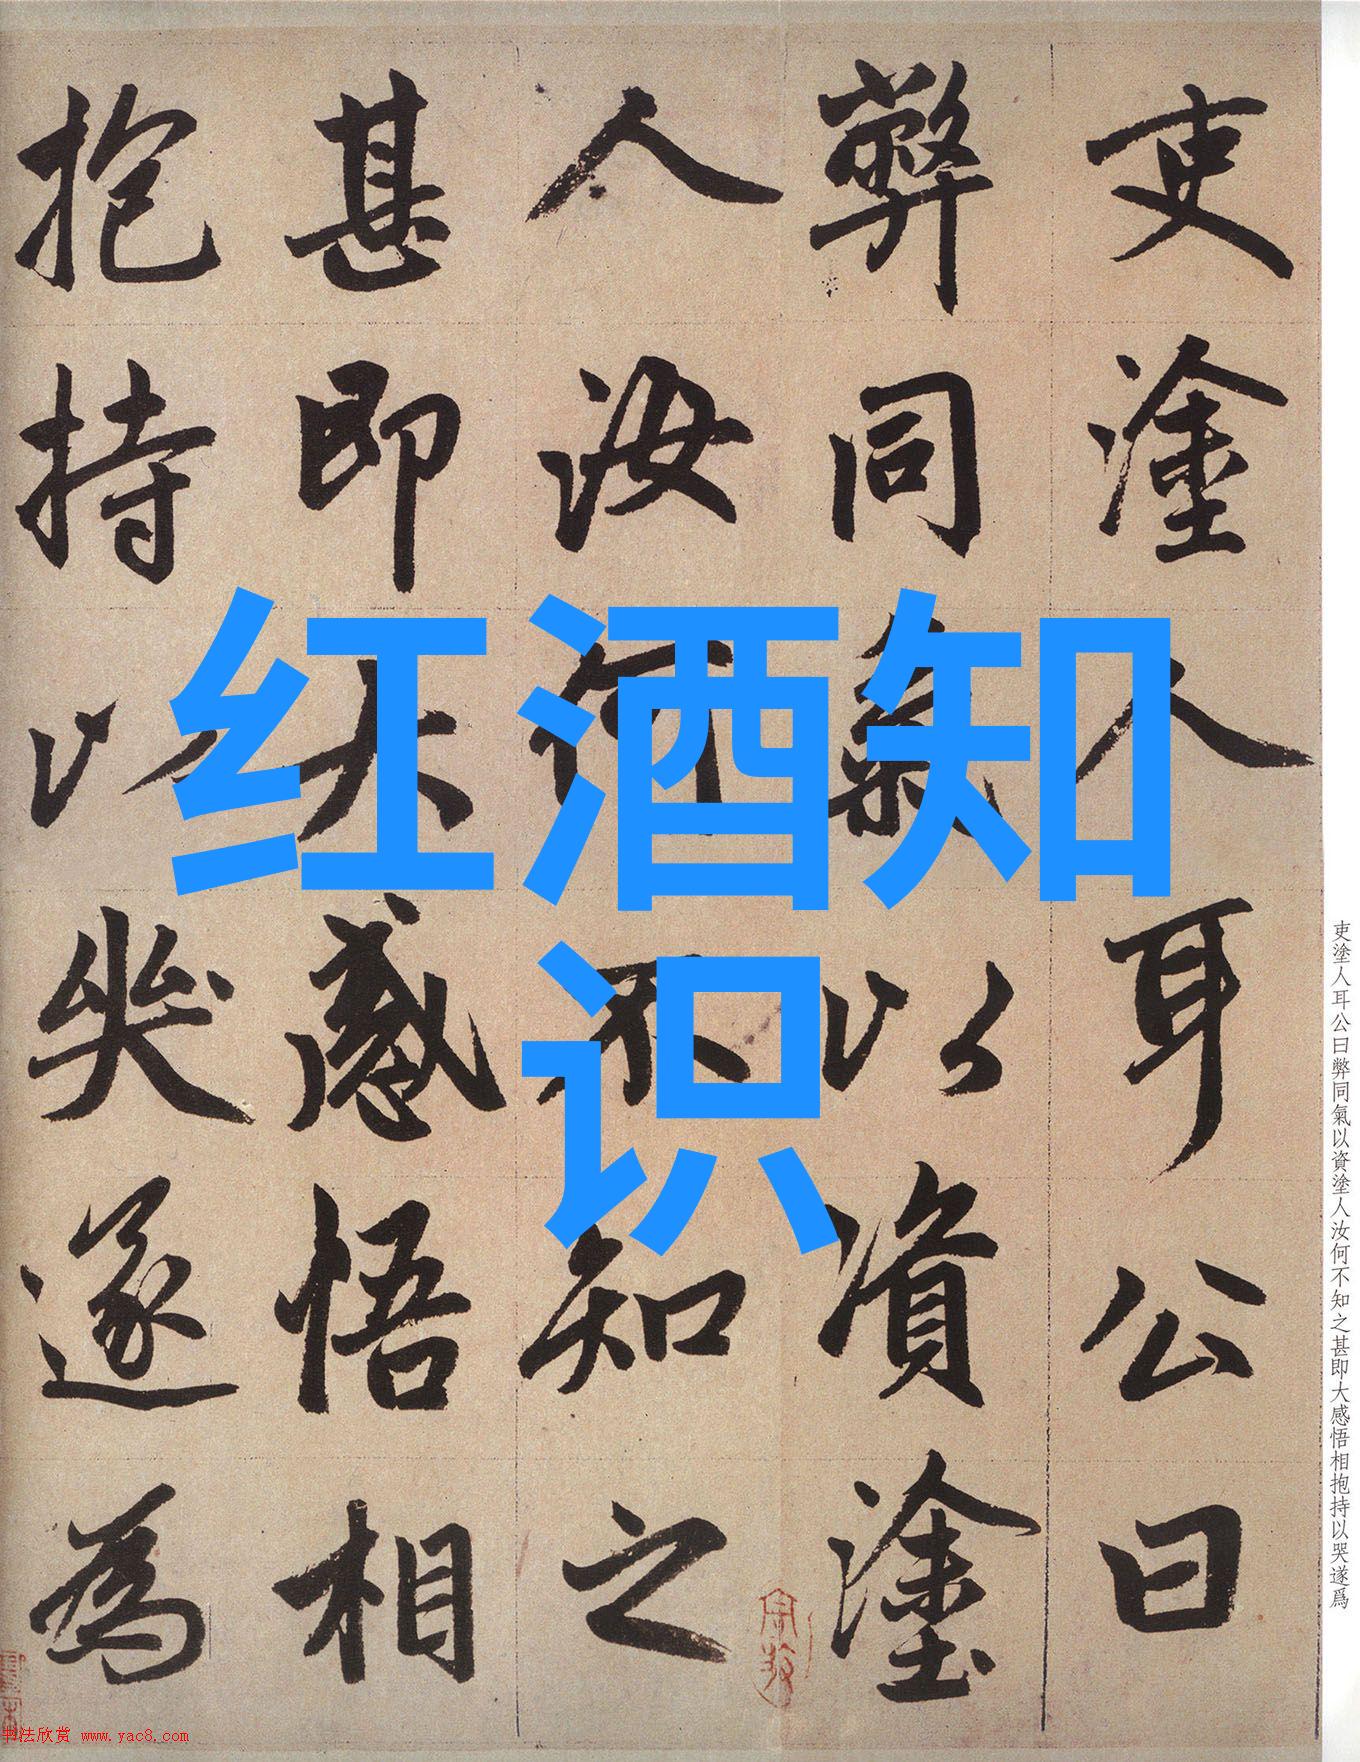 吏塗人耳公曰
弊同氣以資塗
人汝何不知之
甚即大感悟相
抱持以哭遂為
红酒知
识
吏塗人耳公曰弊同氣以資塗人汝何不知之甚即大感悟相抱持以哭遂爲
书法欣赏 www.yac8.com